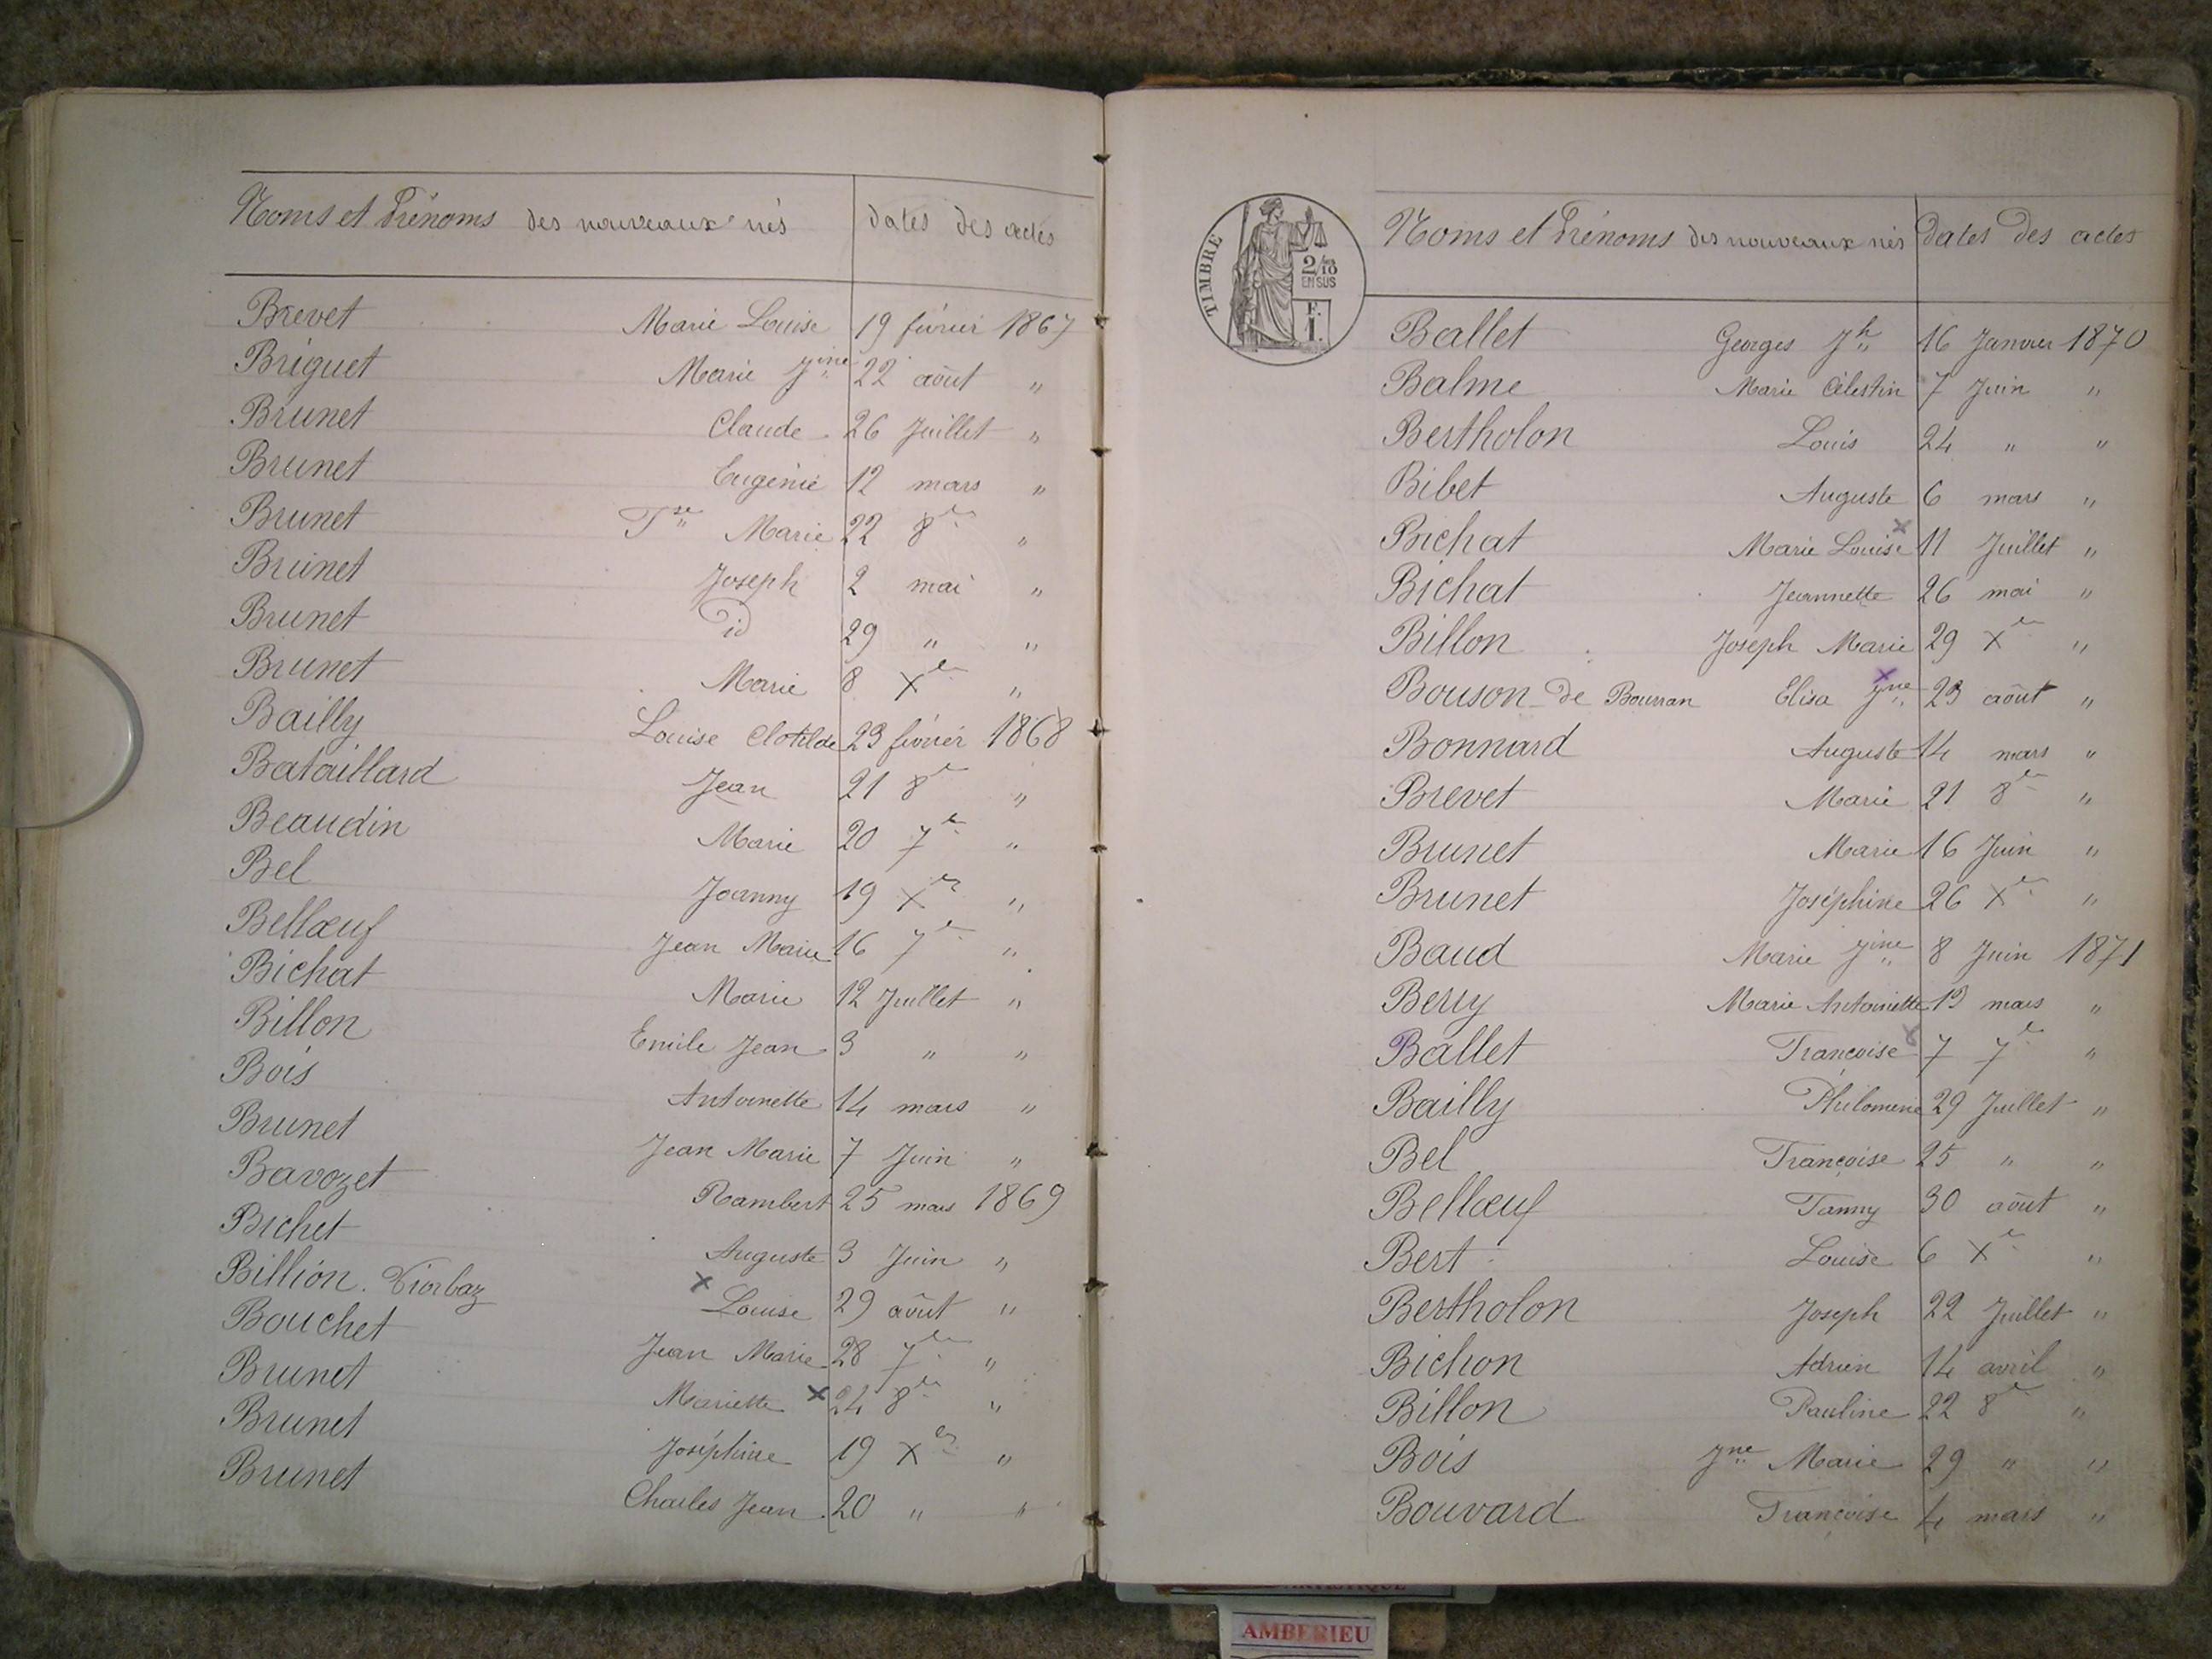 Noms et Prénoms des nouveaux nés dates des actes
Brevet Marie Louise 19 février 1867
Briguet Marie Jine 22 août "
Brunet Claude 26 Juillet "
Brunet Eugénie 12 mars "
Brunet Fse Marie 22 8re "
Brunet Joseph 2 mai "
Brunet id 29 " "
Brunet Marie 8 Xre "
Bailly Louise Clotilde 23 février 1868
Bataillard Jean 21 8re "
Beaudin Marie 20 7re "
Bel Joanny 19 Xre "
Bellœuf Jean Marie 16 7re "
Bichat Marie 12 Juillet "
Billon Emile Jean 3 " "
Bois Antoinette 14 mars "
Brunet Jean Marie 7 Juin "
Bavozet Rambert 25 mars 1869
Bichet Auguste 3 Juin "
Billion. x Louise 29 août "
Bouchet Jean Marie 28 7re "
Brunet Mariette x 24 8re "
Brunet Joséphine 19 Xre "
Brunet Charles Jean 20 " "
TIMBRE
2/10
EN SUS
F.
1.
Noms et Prénoms des nouveaux nés dates des actes
Ballet Georges Jh 16 Janvier 1870
Balme Marie Célestin 7 Juin "
Bertholon Louis 24 " "
Bibet Auguste 6 mars "
Bichat Marie Louise x 11 Juillet "
Bichat Jeannette 26 mai "
Billon Joseph Marie 29 Xre "
Bouson de Bourran Elisa Jne x 23 août "
Bonnard Auguste 14 mars "
Brevet Marie 21 8re "
Brunet Marie 16 Juin "
Brunet Joséphine 26 Xre "
Baud Marie Jine 8 Juin 1871
Berry Marie Antoinette 13 mars "
Ballet Françoise x 7 7re "
Bailly Philomène 29 Juillet "
Bel Françoise 25 " "
Bellœuf Fanny 30 août "
Bert Louise 6 Xre "
Bertholon Joseph 22 Juillet "
Bichon Adrien 14 avril "
Billon Pauline 22 8re "
Bois Jne Marie 29 " "
Bouvard Françoise 4 mars "
AMBERIEU